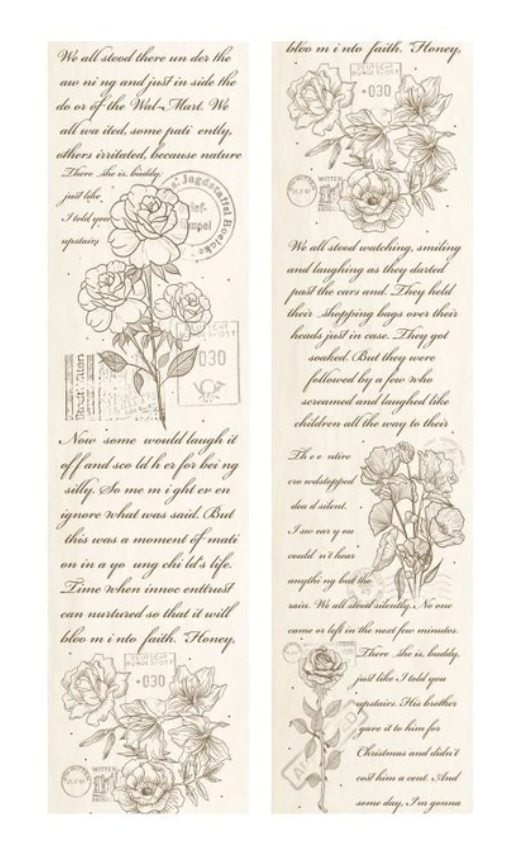 We all stood there un der the
aw ni ng and just in side the
do or of the Wal-Mart. We
all wa ited, some pati ently,
others irritated, because nature
There she is, buddy.
just like
I told you
upstairs
Jagdstaffel Boelcke
030
Now some would laugh it
off and sco ld h er for bei ng
silly. So me m i ght ev en
ignore what was said. But
this was a moment of mati
on in a yo ung chi ld's life.
Time when innoc enttrust
can nurtured so that it will
bloo m i nto faith. "Honey,
DEUTSCHE
BUNDESPOST
·030
WITTEN
bloo m i nto faith. "Honey,
DEUTSCHE
BUNDESPOST
·030
WITTEN
We all stood watching, smiling
and laughing as they darted
past the cars and. They held
their shopping bags over their
heads just in case. They got
soaked. But they were
followed by a few who
screamed and laughed like
children all the way to their
Th e e ntire
cro wdstopped
dea d silent.
I sw ear y ou
could n't hear
anythi ng but the
rain. We all stood silently. No one
came or left in the next few minutes.
There she is, buddy,
just like I told you
upstairs. His brother
gave it to him for
Christmas and didn't
cost him a cent. And
some day, I'm gonna